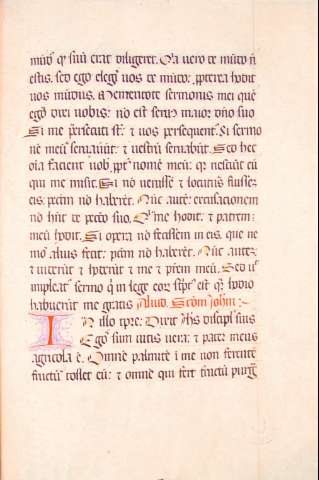 mūd⁹ qđ suū erat diligeret. Q̄a vero de mūdo nō
estis. sed ego elegi vos de mūdo: ꝓpterea hodit
vos mūdus. Mementote sermonis mei quē
ego dixi vobis: nō est seru⁹ maior dn̄o suo
Si me persecuti st̄: ⁊ vos persequent̄. Si sermo
nē meū seruauūt: ⁊ vestrū seruabūt. Sed hec
oīa facient vob̄ ꝓpt̄ nomē meū: qr nesciūt eū
qui me misit. Si nō venissē ⁊ locutus fuissē
eis: pctm̄ nō haberēt. Nūc autē: excusacionem
nō hn̄t de pctō suo. Q̄ me hodit: ⁊ patrem
meū hodit. Si opera nō fecissem in eis. que ne
mo alius fecit: pctm̄ nō haberēt. Nūc autē:
⁊ viderūt ⁊ hoderūt ⁊ me ⁊ pr̄em meū. Sed ut
impleat̄ sermo q̄ in lege eoꝝ sc̄pt⁹ est: qr hodio
habuerūt me gratis Aliud. Scdm̄ johm̄:
IN illo tp̄re: Dixit ih̄s discipl̄is suis
Ego sum vitis vera: ⁊ pater meus
agricola ē. Omnē palmitē ī me non ferentē
fructū: tollet eū: ⁊ omnē qui fert fructū purg